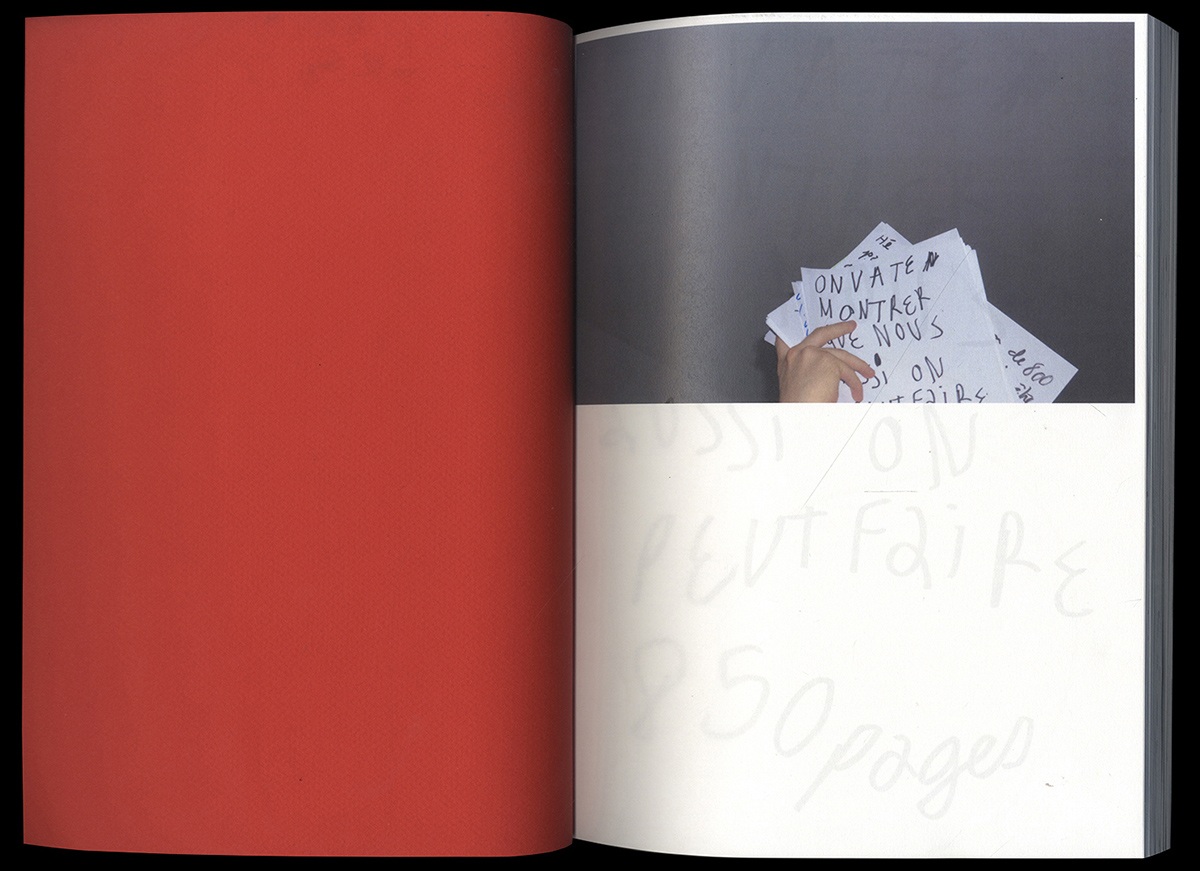 Hé
ON VA TE
MONTRER
QUE NOUS
ON
PEUT FaiRE
de 800
aUSSi ON
PEUT FaiRE
850 pages